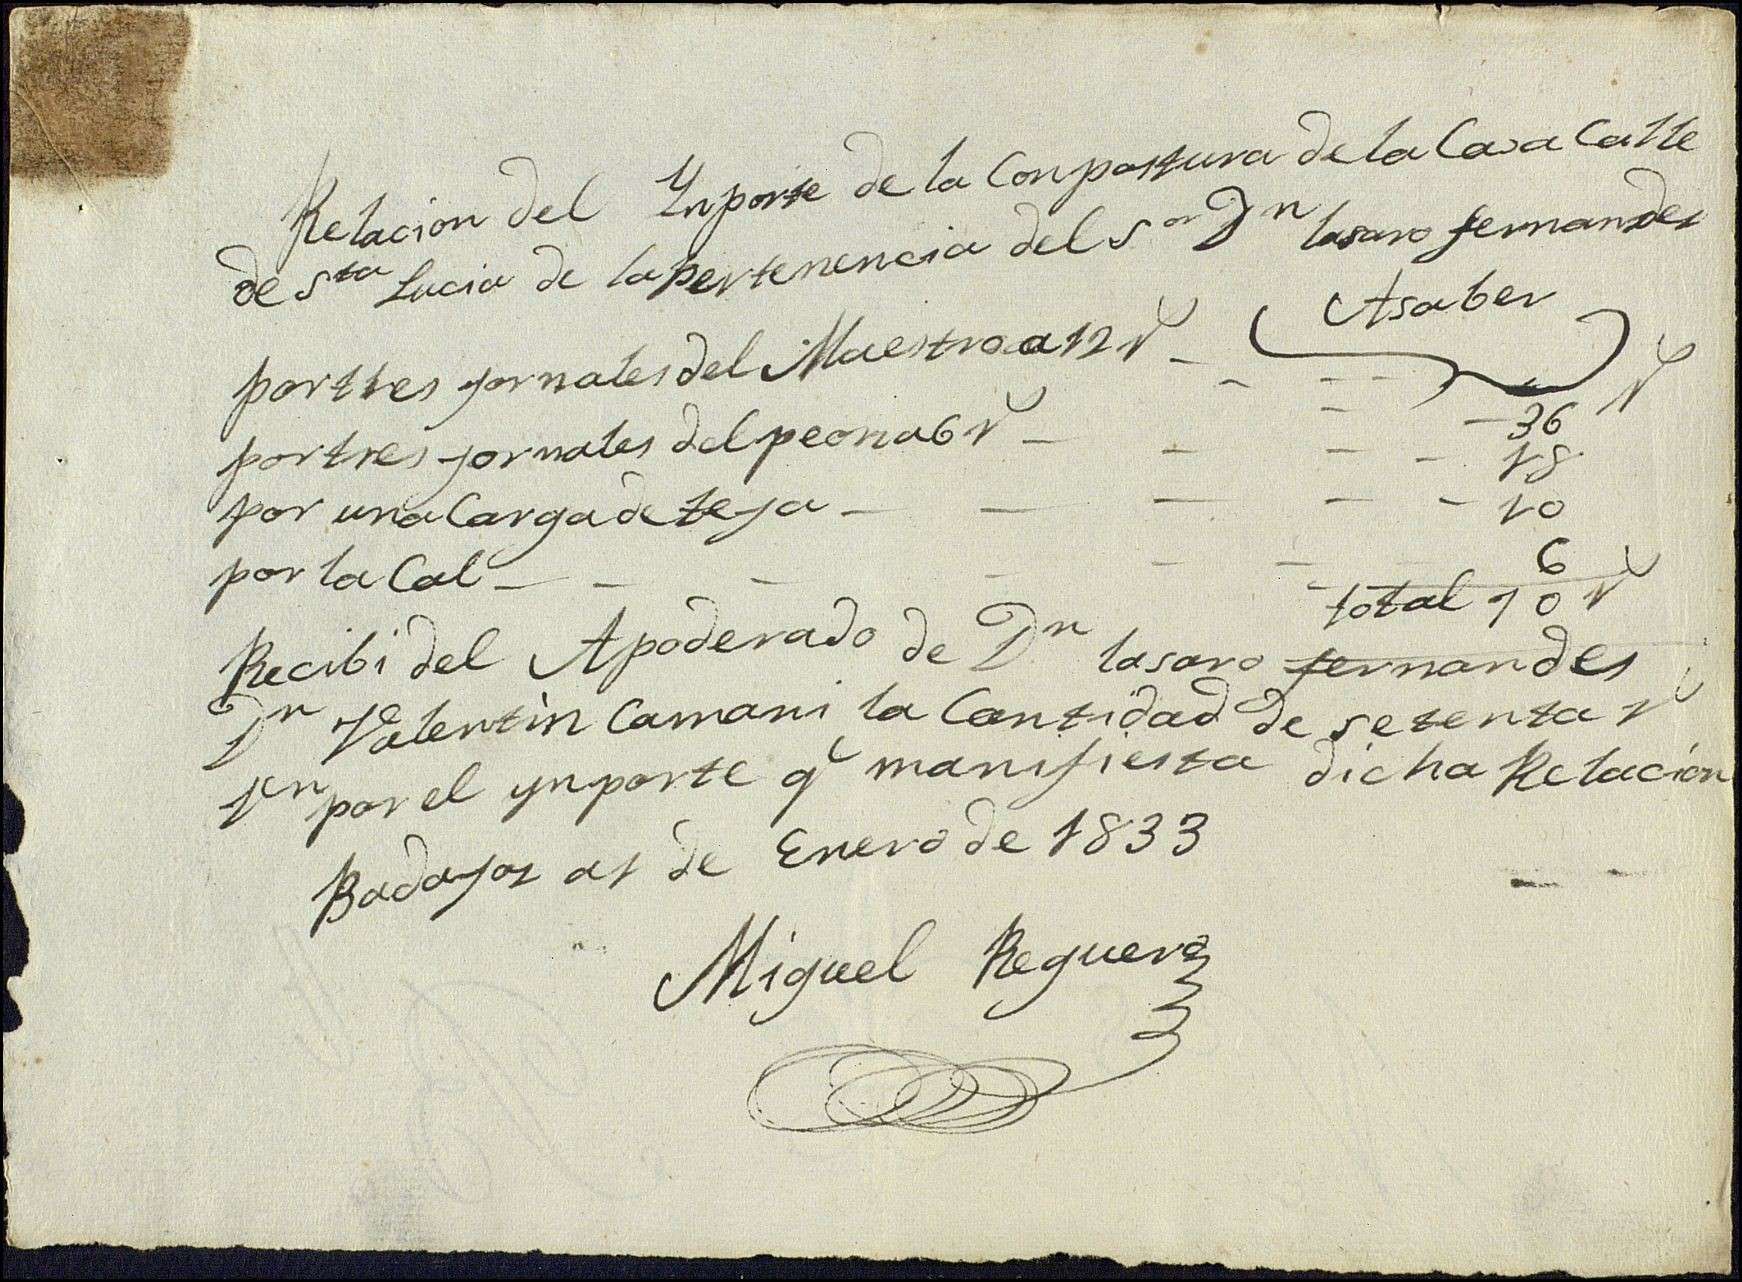 Relacion del Ynporte de la Conpostura de la Casa Calle
de Sta Lucia de la pertenencia del Sor Dn lasaro fernandes
Asaber
por tres jornales del Maestro a 12 r
36
por tres jornales del peon a 6 r
18
por una Carga de teja
10
por la Cal
6
total 70 r
Recibi del Apoderado de Dn lasaro fernandes
Dn Valentin Camani la Cantidad de setenta r
vn por el ynporte q manifiesta dicha Relacion
Badajos a 1 de Enero de 1833
Miguel Reguera